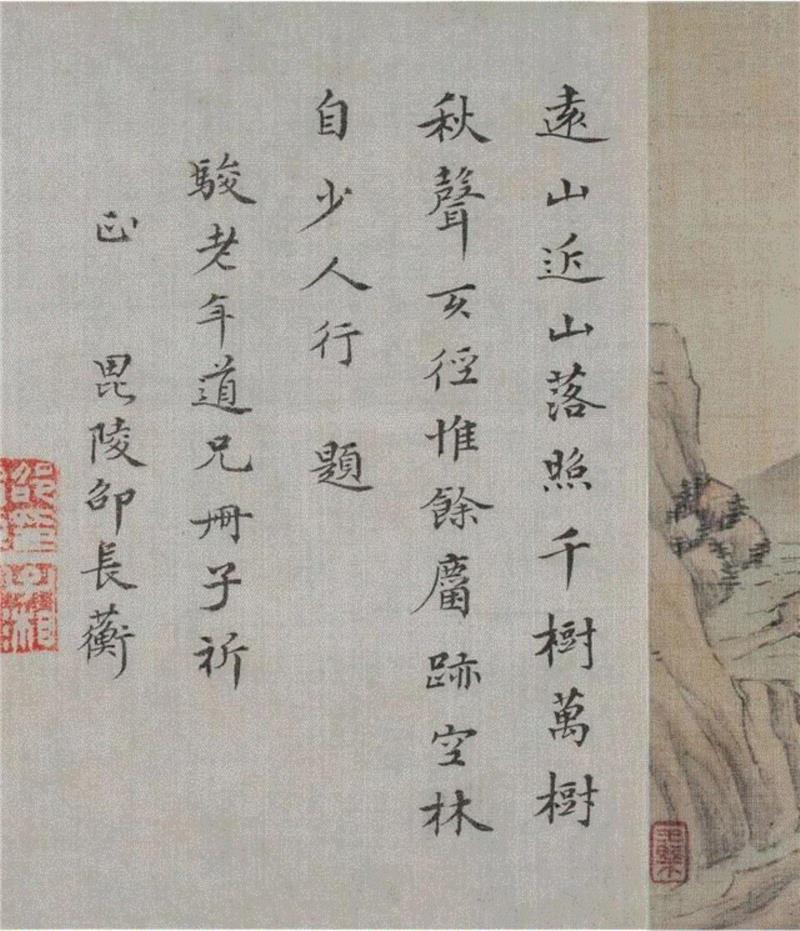 遠山近山落照千樹萬樹
秋聲徑惟餘跡空林
自少人行 題
駿老年道兄冊子祈
正 毘陵邵長蘅